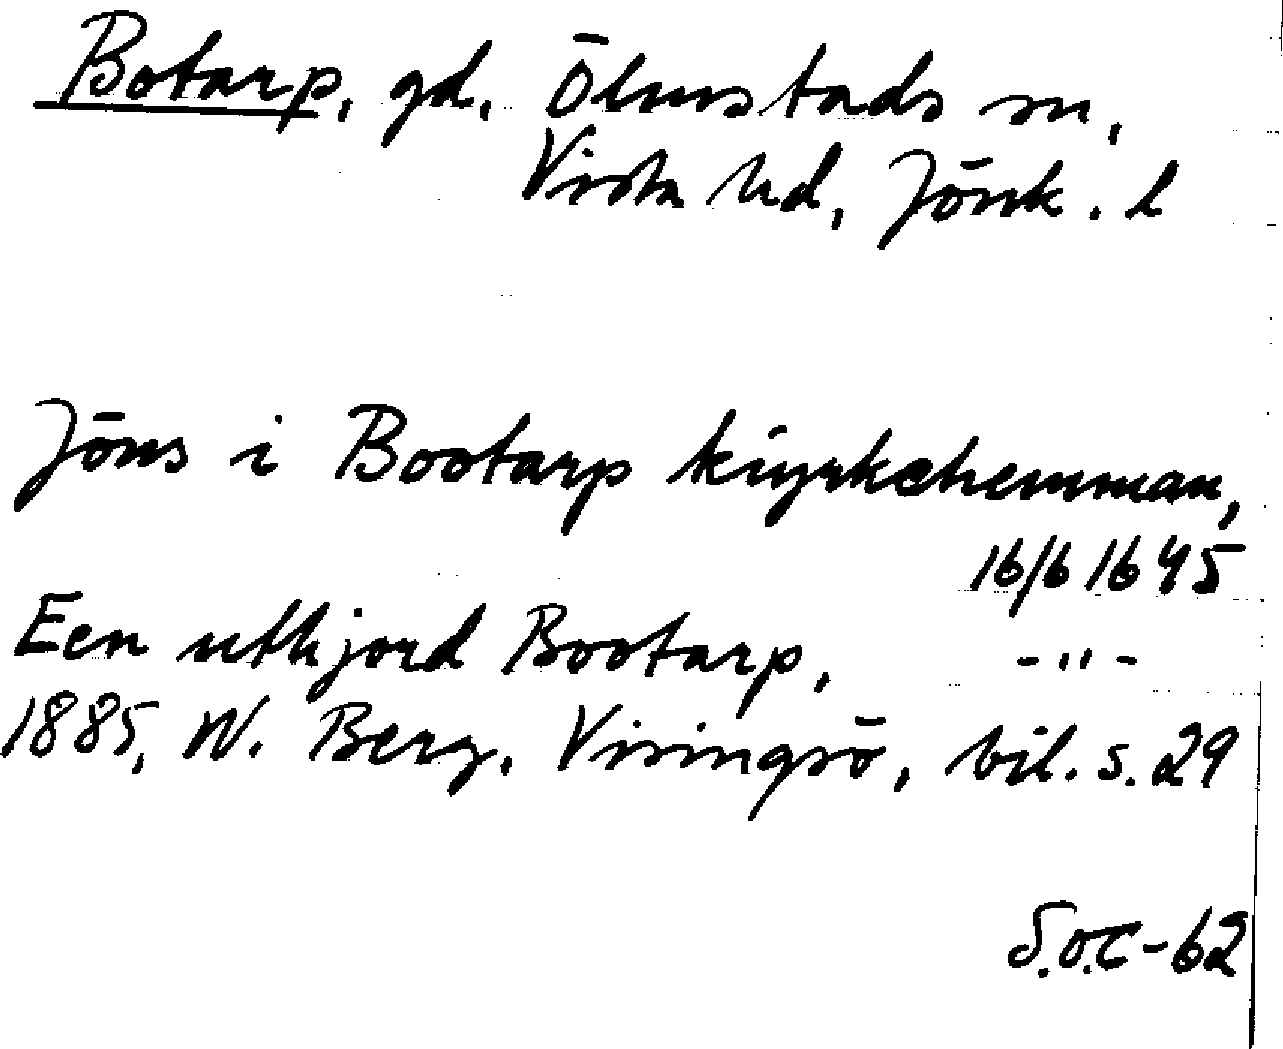 Botarp, gd, Ölmstads sn,
Vista hd, Jönk. l
Jöns i Bootarp kiyrkehemman,
16/6 1645
Een uthjord Bootarp, -"-
1885, W. Berg, Visingsö, bil. s. 29
S.O.C-62